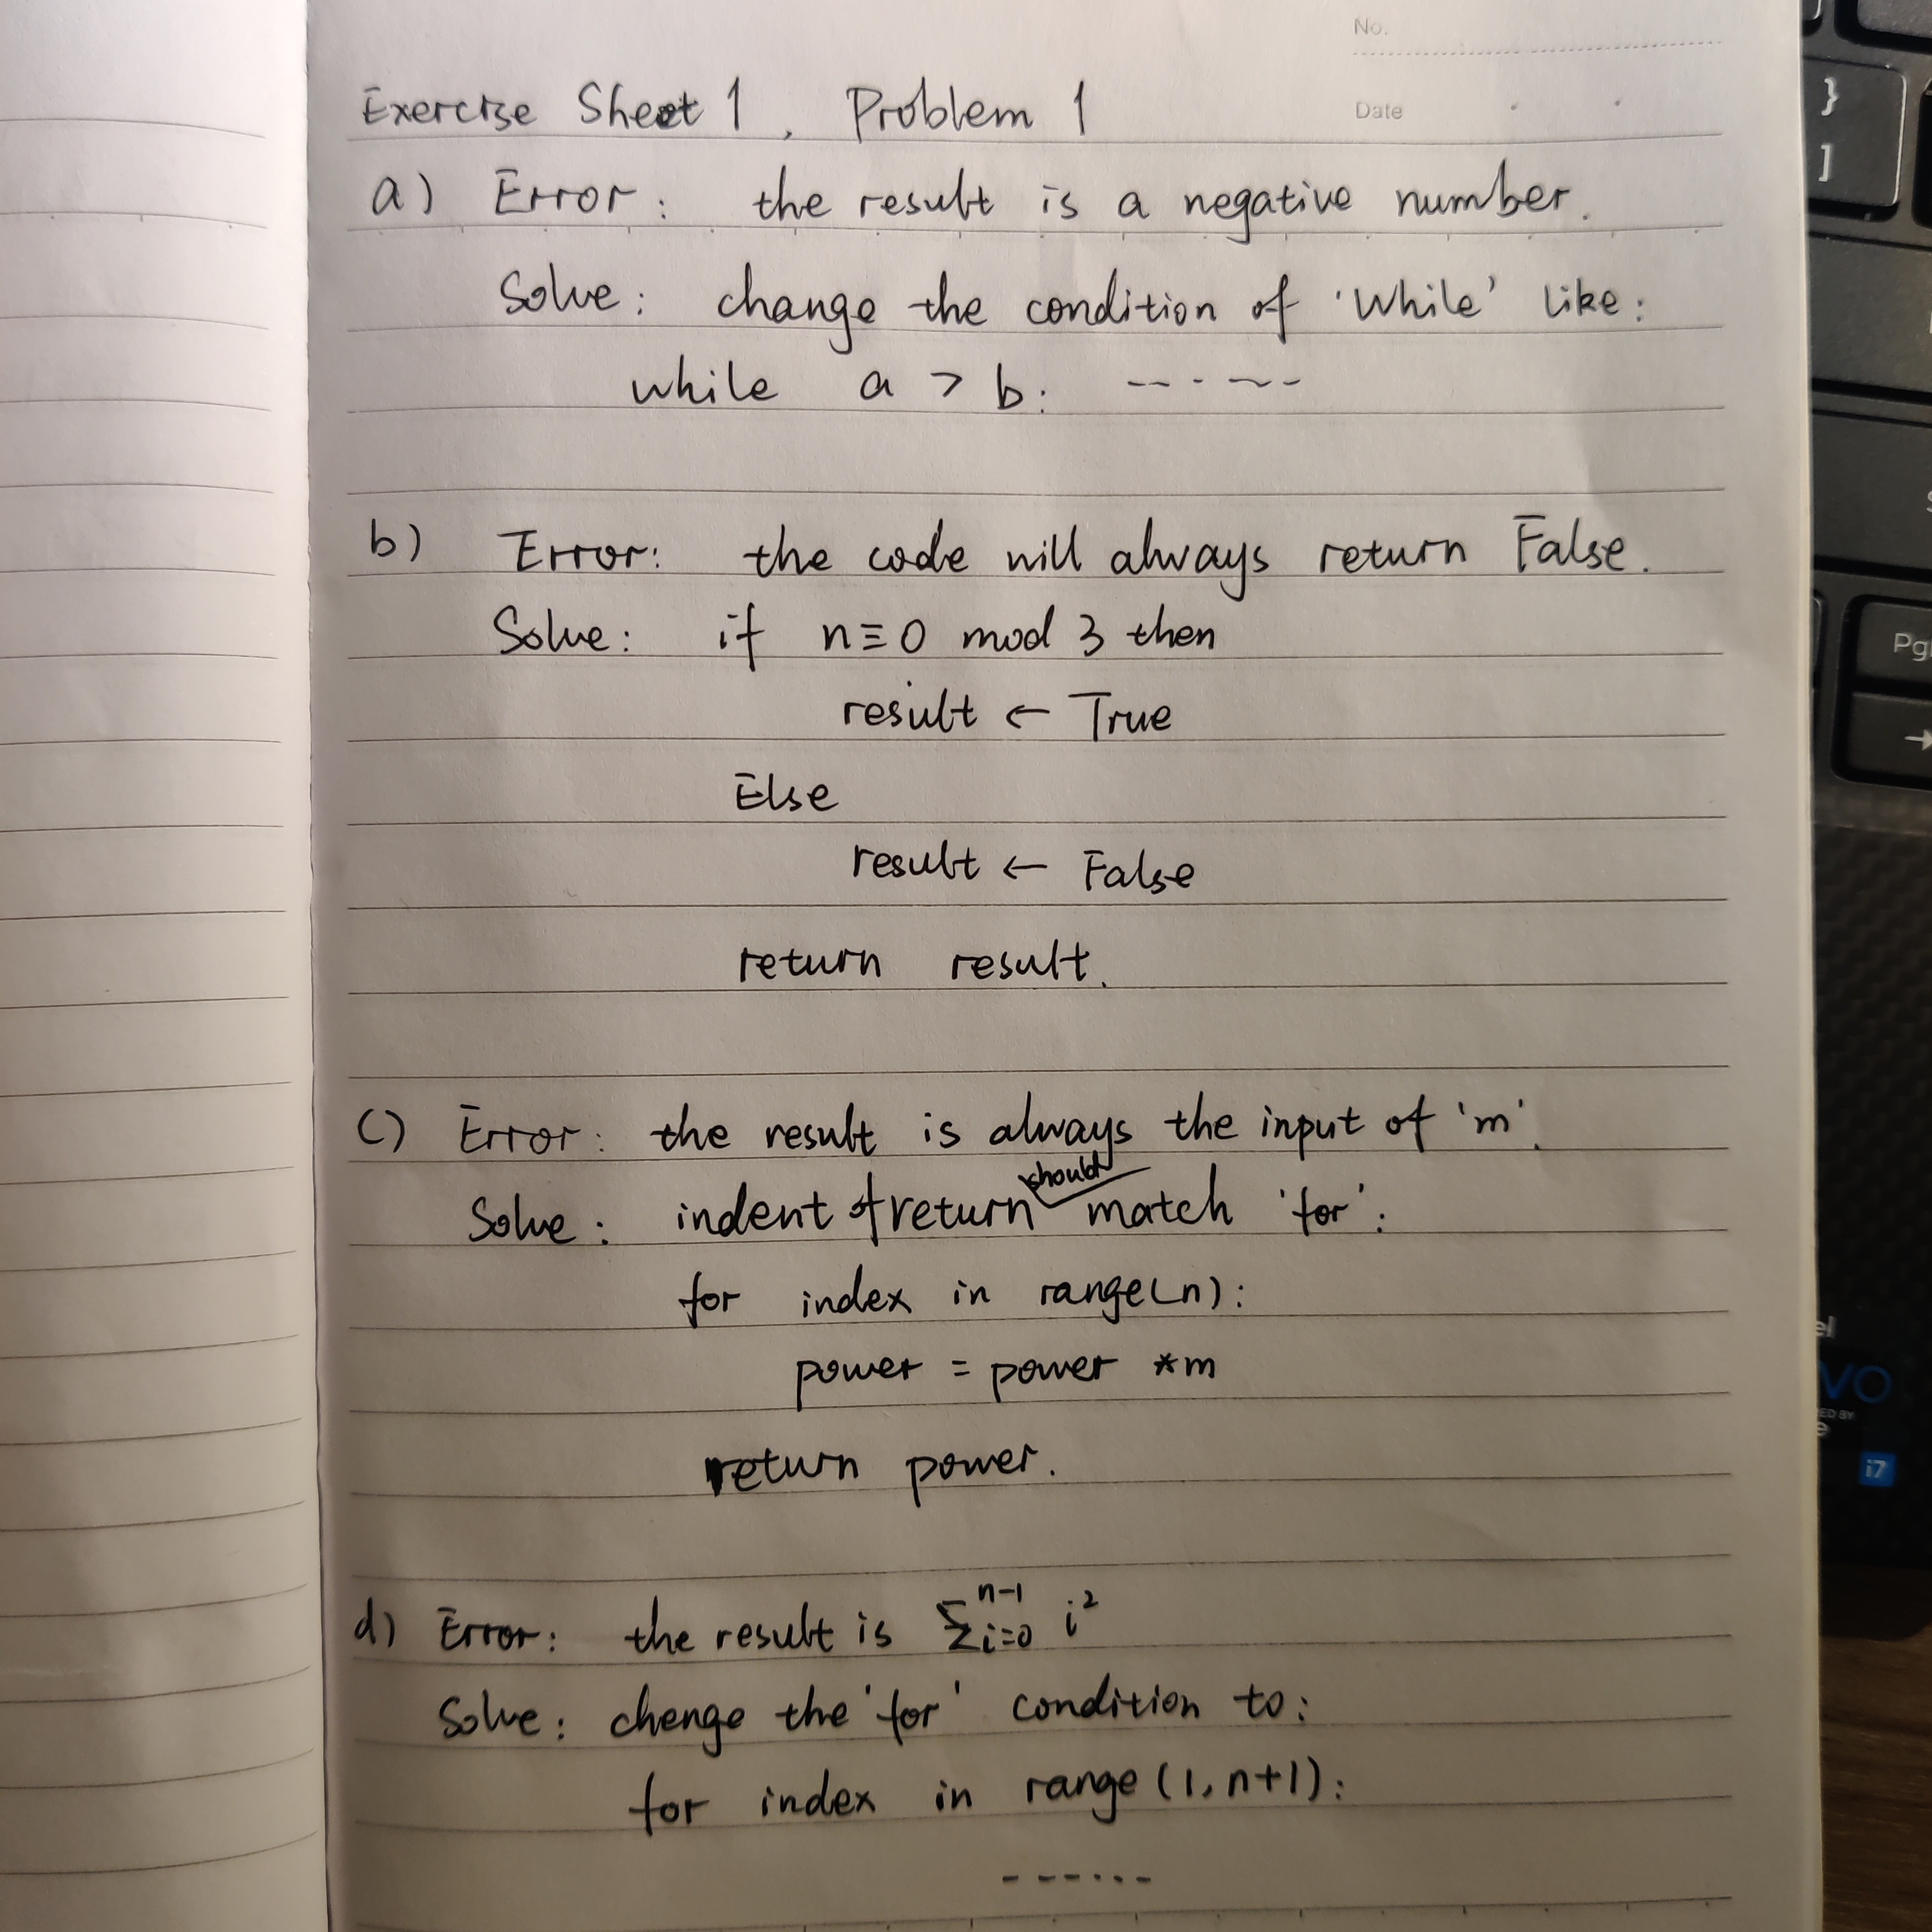 No.
Date
Exercise Sheet 1, Problem 1
a) Error: the result is a negative number.
Solve: change the condition of 'While' like:
while a > b: ------
b) Error: the code will always return False.
Solve: if n≡0 mod 3 then
result ← True
Else
result ← False
return result.
c) Error: the result is always the input of 'm'.
Solve: indent of return should match 'for':
for index in range(n):
power = power *m
return power.
d) Error: the result is ∑_{i=0}^{n-1} i²
Solve: chenge the 'for' condition to:
for index in range (1, n+1):
------
}
]
i7